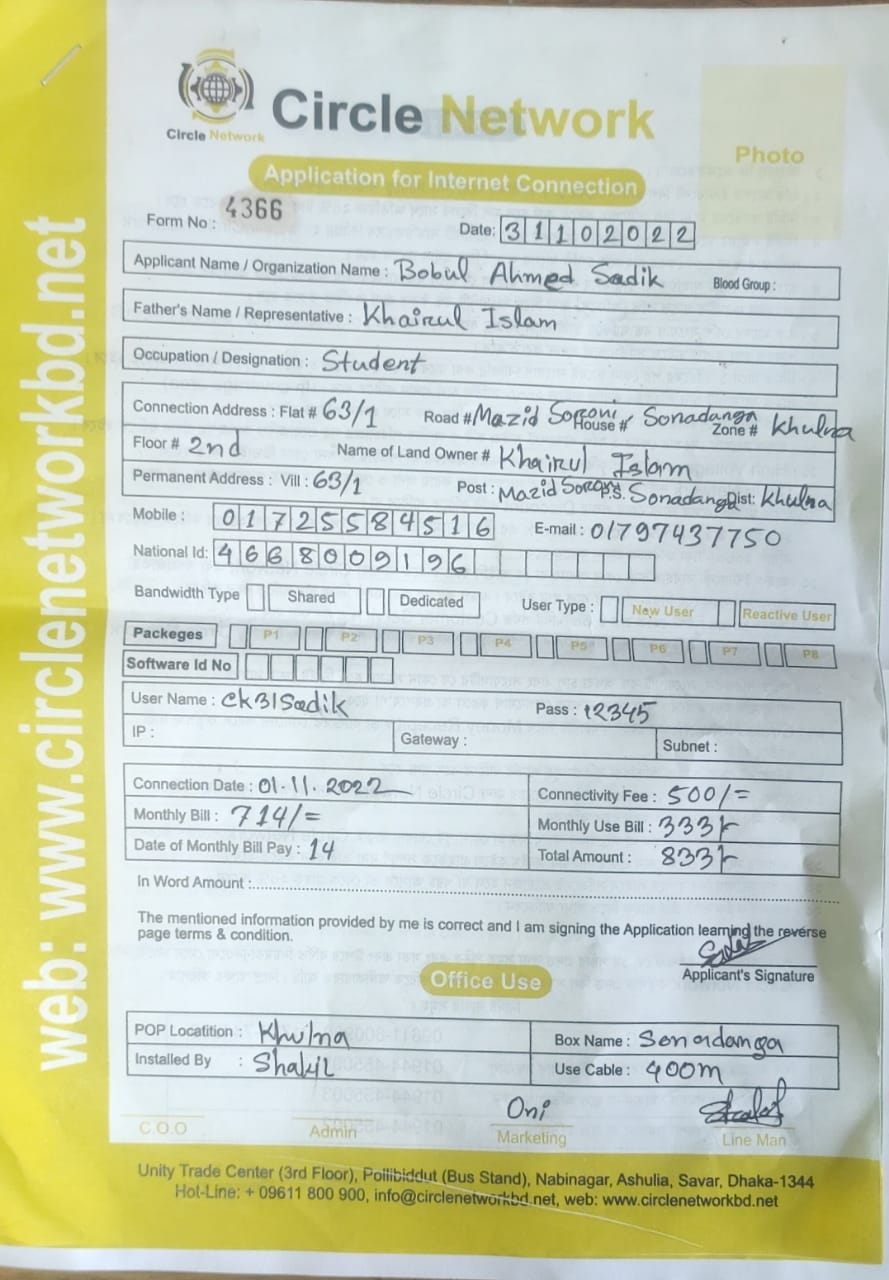 Circle Network
Circle Network
Photo
Application for Internet Connection
Form No : 4366
Date: 31102022
Applicant Name / Organization Name : Bobul Ahmed Sadik Blood Group :
Father's Name / Representative : Khairul Islam
Occupation / Designation : Student
Connection Address : Flat # 63/1 Road # Mazid Soroni House # Sonadanga Zone # Khulna
Floor # 2nd Name of Land Owner # Khairul Islam
Permanent Address : Vill : 63/1 Post : Mazid Soroni P.S. Sonadanga Dist: Khulna
Mobile : 01725584516 E-mail : 01797437750
National Id: 4668009196
Bandwidth Type Shared Dedicated User Type : New User Reactive User
Packeges P1 P2 P3 P4 P5 P6 P7 P8
Software Id No
User Name : Ck31Sadik Pass : 12345
IP : Gateway : Subnet :
Connection Date : 01.11.2022 Connectivity Fee : 500/=
Monthly Bill : 714/= Monthly Use Bill : 333/-
Date of Monthly Bill Pay : 14 Total Amount : 833/-
In Word Amount :
The mentioned information provided by me is correct and I am signing the Application learning the reverse
page terms & condition.
Applicant's Signature
Office Use
POP Locatition : Khulna Box Name : Sonadanga
Installed By : Shakil Use Cable : 400m
Oni
C.O.O Admin Marketing Line Man
Unity Trade Center (3rd Floor), Pollibiddut (Bus Stand), Nabinagar, Ashulia, Savar, Dhaka-1344
Hot-Line: + 09611 800 900, info@circlenetworkbd.net, web: www.circlenetworkbd.net
web: www.circlenetworkbd.net